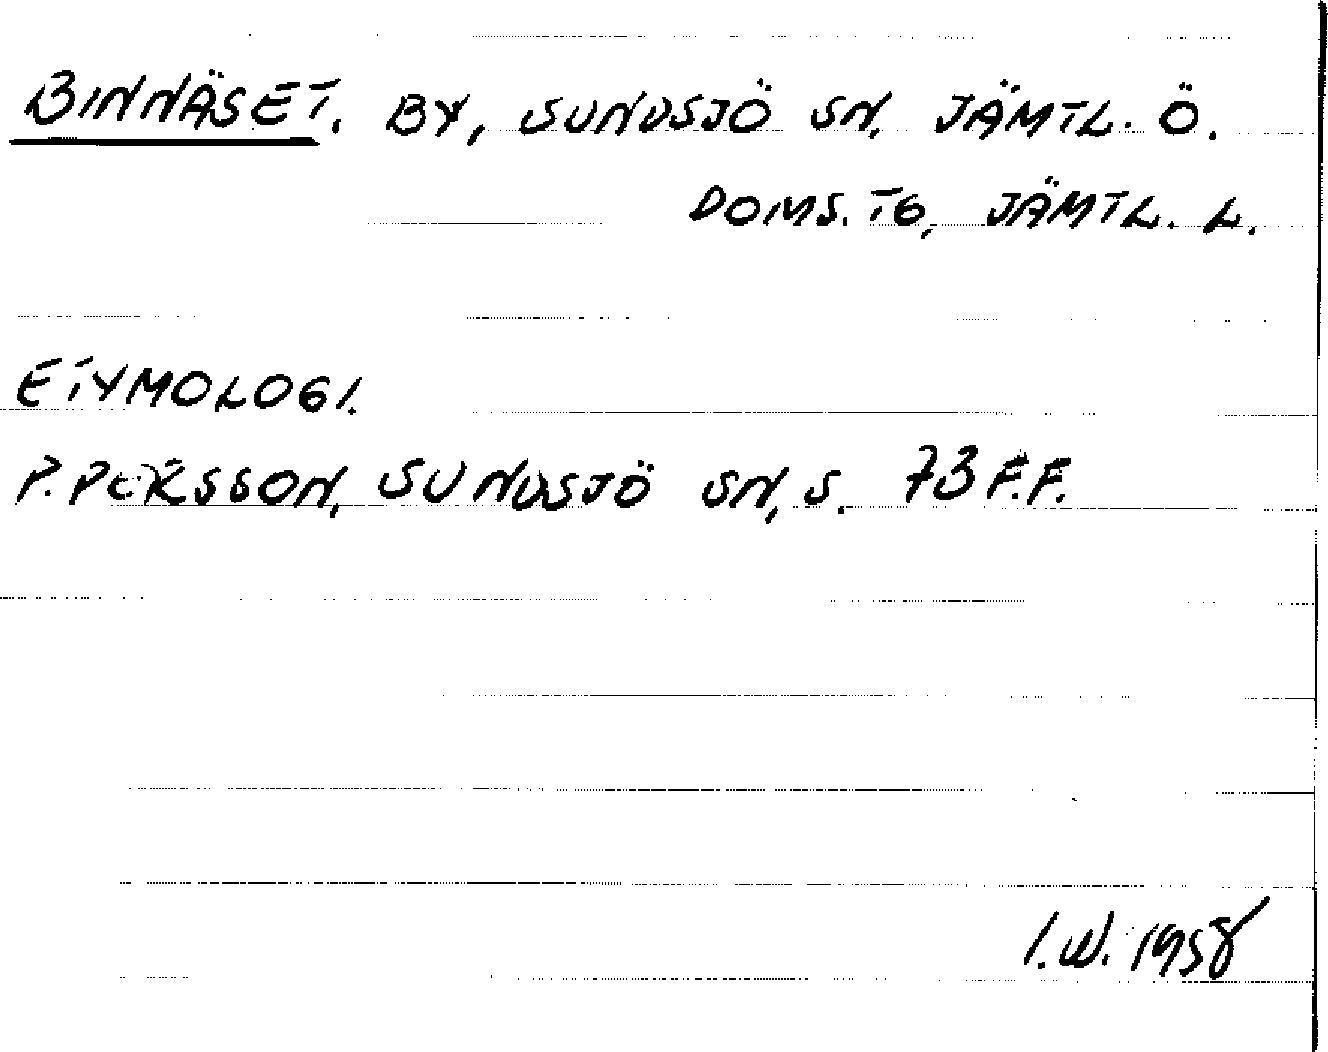 BINNÄSET. BY, SUNDSJÖ SN, JÄMTL. Ö.
DOMS. TG, JÄMTL. L.
ETYMOLOGI.
P. PERSSON, SUNDSJÖ SN, S. 73 F.F.
I.W. 1958